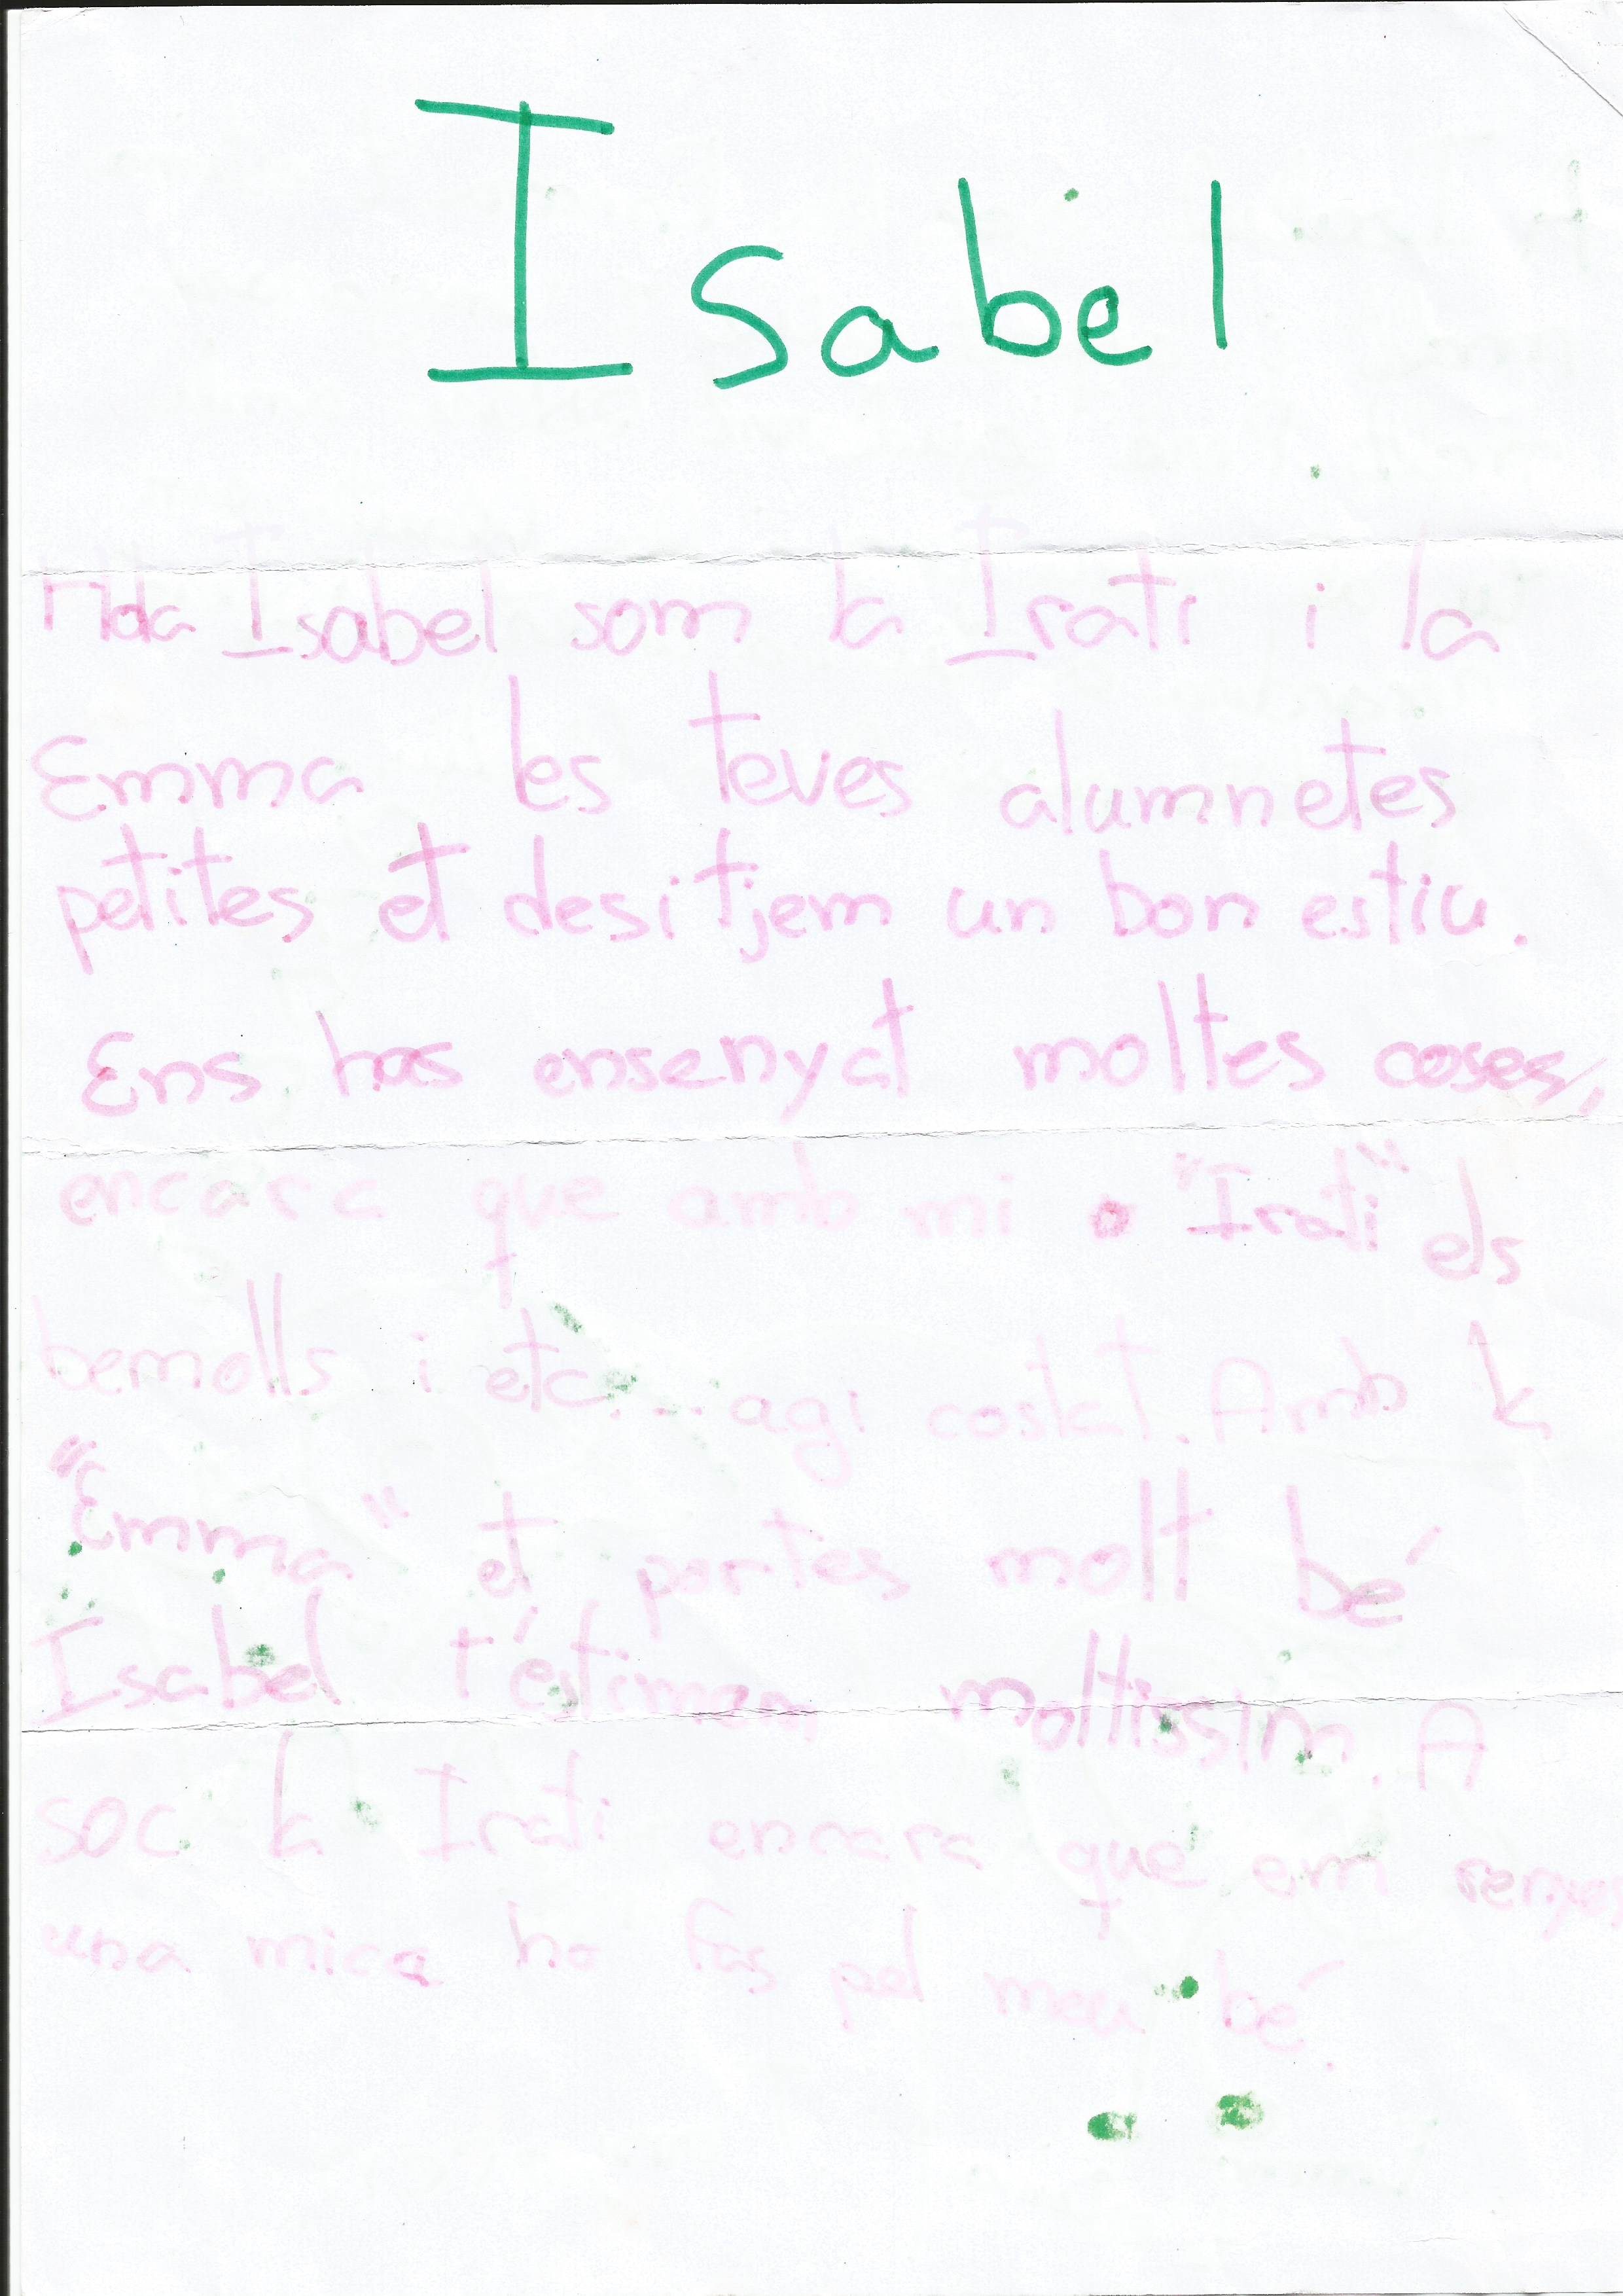 Isabel
Hola Isabel som la Irati i la
Emma les teves alumnetes
petites et desitjem un bon estiu.
Ens has ensenyat moltes coses,
encara que amb mi "Irati" els
bemolls i etc... agi costat. Amb la
"Emma" et portes molt bé
Isabel t'éstimem moltissim. A
soc la Irati encara que em renyes
una mica ho fas pel meu bé.